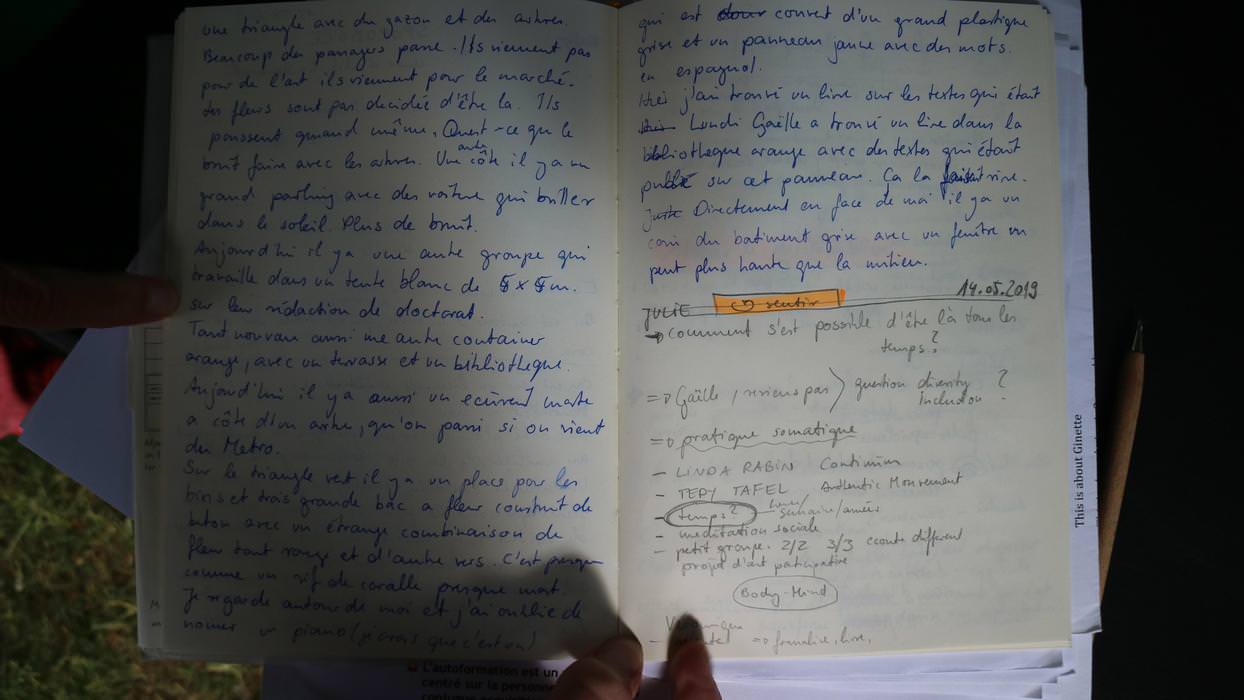 une triangle avec du gazon et des arbres.
Beaucoup des passagers passe. Ils viennent pas
pour de l'art ils viennent pour le marché.
Les fleurs sont pas decidée d'être la. Ils
poussent quand même. Quest-ce que le
bruit faire avec les arbres. Une autre côte il y a un
grand parking avec des voiture qui briller
dans le soleil. Plus de bruit.
Aujourd'hui il y a une autre groupe qui
travaille dans un tente blanc de 5 x 5 m.
sur leur rédaction de doctorat.
Tout nouveau aussi une autre container
orange, avec un terrasse et un bibliotheque.
Aujourd'hui il y a aussi un morte
a côte d'un arbre, qu'on passi si on vient
du Metro.
Sur le triangle vert il y a un place pour les
bins et trois grande bac a fleur construit de
beton avec un étrange combinaison de
fleur tout rouge et d'autre vers. C'est presque
comme un rif de coralle presque mort.
Je regarde autour de moi et j'ai oublie de
nomer un piano (je crois que c'est un)
qui est couvert d'un grand plastique
grise et un panneau jaune avec des mots.
en espagnol.
Hier j'ai trouvé un livre sur les textes qui était
Lundi Gaëlle a trouvé un livre dans la
bibliotheque orange avec des textes qui était
publié sur cet panneau. Ça la faisait rire.
Juste Directement en face de moi il y a un
coin du batiment grise avec un fenêtre un
peut plus haute que la milieu.
JULIE sentir 14.05.2019
→ comment s'est possible d'être là tous les
temps?
=> Gaëlle, reviens pas) question diversity
Inclusion ?
=> pratique somatique
- LINDA RABIN Continuum
- TERY TAFEL Authentic Mouvement
- temps? — heure/
semaine/années
- meditation sociale
- petit groupe. 2/2 3/3 ecoute different
projet d'art participative
Body-Mind
=> formative, livre,
This is about Ginette
L'autoformation est un
centré sur la personne